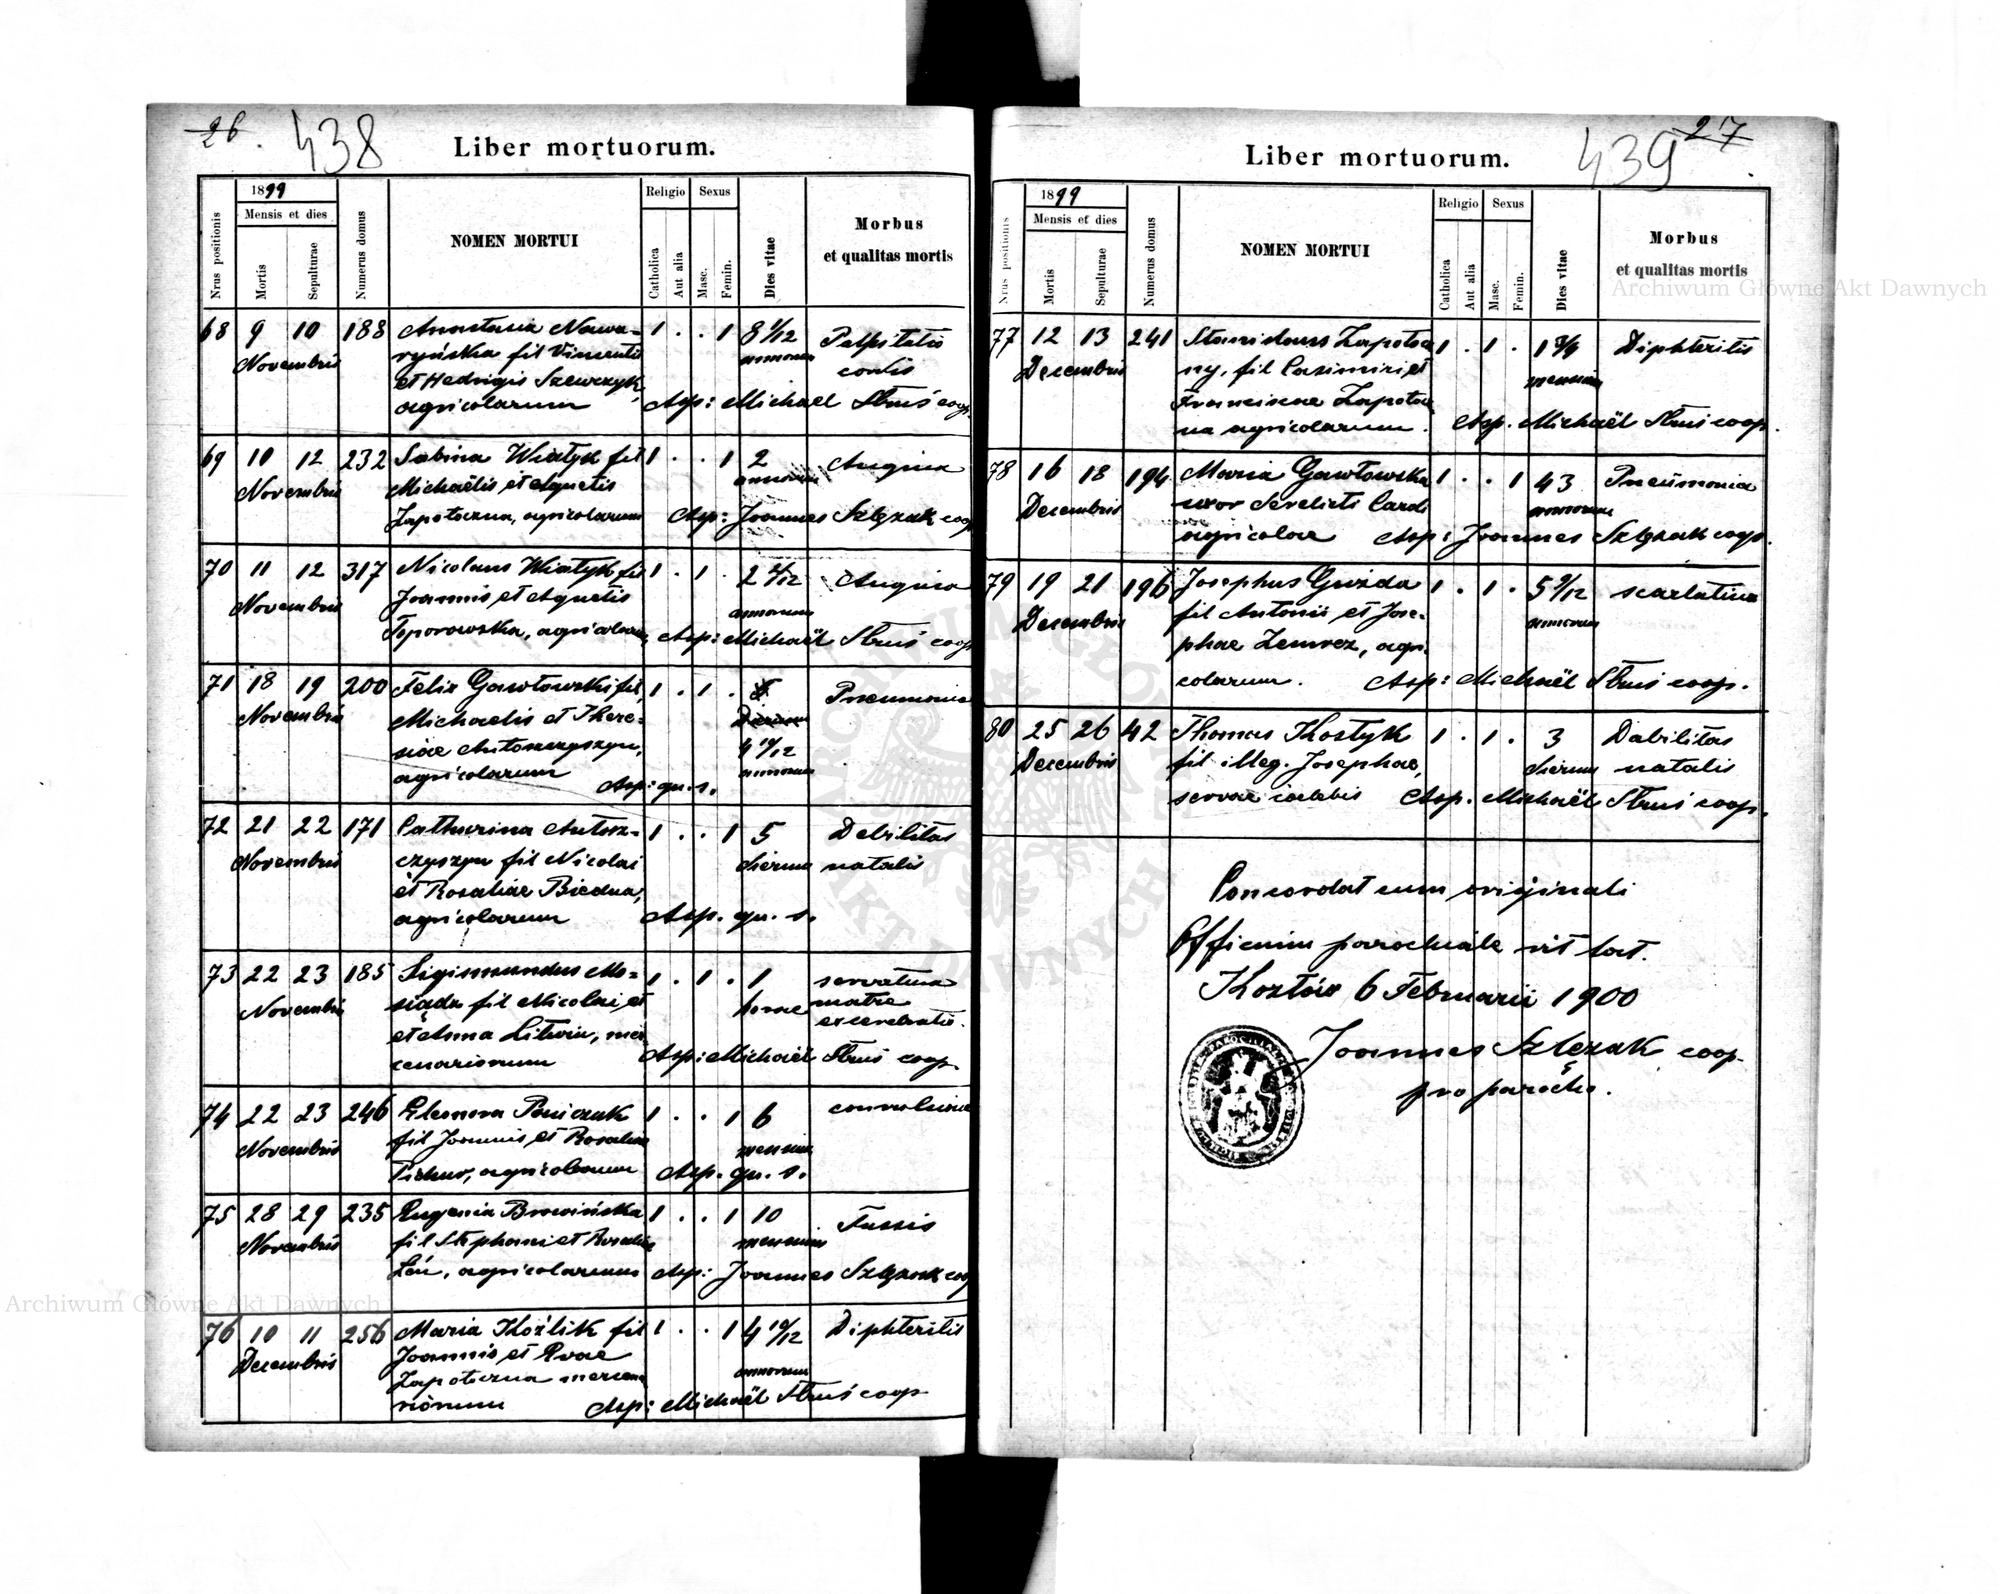 26. 438
Liber mortuorum.
Nrus positionis
1899
Mensis et dies
Mortis
Sepulturae
Numerus domus
NOMEN MORTUI
Religio
Catholica
Aut alia
Sexus
Masc.
Femin.
Dies vitae
Morbus
et qualitas mortis
68 9 10 188 Anastasia Nawa- 1 . . 1 8 1/12 Palpitatio
Novembris ryńska fil Vincenti annorum cordis
et Hedvigis Szewczyk,
agricolarum Asp: Michaël Struś coop.
69 10 12 232 Sabina Wiatyk fil 1 . . 1 2 Angina
Novembris Michaëlis et Agnetis annorum
Zapotoczna, agricolarum Asp: Joannes Szlęzak coop
70 11 12 317 Nicolaus Wiatyk fil 1 . 1 . 2 4/12 Angina
Novembris Joannis et Agnetis annorum
Toporowska, agricolarum Asp: Michaël Struś coop
71 18 19 200 Felix Gawłowski fil 1 . 1 . Pneumonia
Novembris Michaelis et There- dierum
siae Antoszczyszyn, 4 10/12
agricolarum annorum
Asp: qu. s.
72 21 22 171 Catharina Antosz- 1 . . 1 5 Debilitas
Novembris czyszyn fil Nicolai dierum natalis
et Rosaliae Biedna,
agricolarum Asp. qu. s.
73 22 23 185 Sigismundus 1 . 1 . 1
Novembris fil Nicolai, et horae matre
et Anna Litwin, mer
cenariorum Asp: Michaël Struś coop
74 22 23 246 Eleonora Paniczak 1 . . 1 6 convulsiones
Novembris fil Joannis, et Rosaliae mensium
agricolarum Asp. qu. s.
75 28 29 235 Eugenia Browińska 1 . . 1 10 Tussis
Novembris fil Stephani et Rosaliae mensium
Łoń, agricolarum Asp: Joannes Szlęzak coop
76 10 11 256 Maria Koźlik fil 1 . . 1 4 10/12 Diphteritis
Decembris Joannis et Evae annorum
Zapotoczna mercena
riorum Asp: Michaël Struś coop
439 27
Liber mortuorum.
Nrus positionis
1899
Mensis et dies
Mortis
Sepulturae
Numerus domus
NOMEN MORTUI
Religio
Catholica
Aut alia
Sexus
Masc.
Femin.
Dies vitae
Morbus
et qualitas mortis
77 12 13 241 Stanislaus Zapotocz 1 . 1 . Diphteritis
Decembris ny, fil Casimiri et mensium
Franciscae Zapotocz
na agricolarum. Asp. Michaël Struś coop.
78 16 18 194 Maria Gawłowska 1 . . 1 43 Pneumonia
Decembris uxor derelicti Caroli annorum
agricolae Asp: Joannes Szlęzak coop.
79 19 21 196 Josephus Gwizda 1 . 1 . 5 9/12 scarlatina
Decembris fil Antonii et Jose- annorum
phae Zemrez, agri
colarum. Asp: Michaël Struś coop.
80 25 26 42 Thomas Kostyk 1 . 1 . 3 Dabilitas
Decembris fil illeg. Josephae, dierum natalis
servae caelebis Asp. Michaël Struś coop.
Concordat cum originali
Officium parochiale rit lat.
Kozłów 6 Februarii 1900
Joannes Szlęzak coop
pro parocho.
Archiwum Główne Akt Dawnych
Archiwum Główne Akt Dawnych
ARCHIWUM GŁÓWNE AKT DAWNYCH